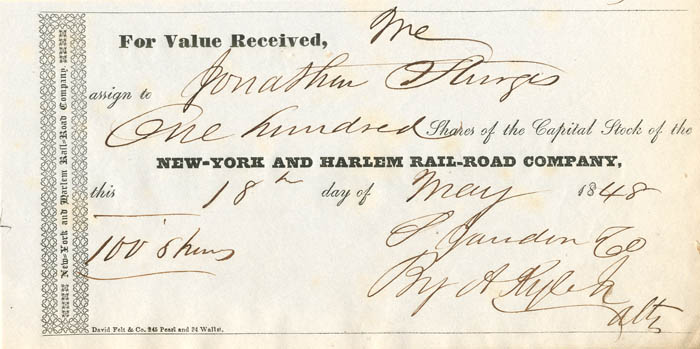 New-York and Harlem Rail-Road Company.
For Value Received, We
assign to Jonathan Sturges
One hundred Shares of the Capital Stock of the
NEW-YORK AND HARLEM RAIL-ROAD COMPANY,
this 18th day of May 1848
100 Shares
S. Jaudon & Co
By A
atty
David Felt & Co. 245 Pearl and 34 Wall st.